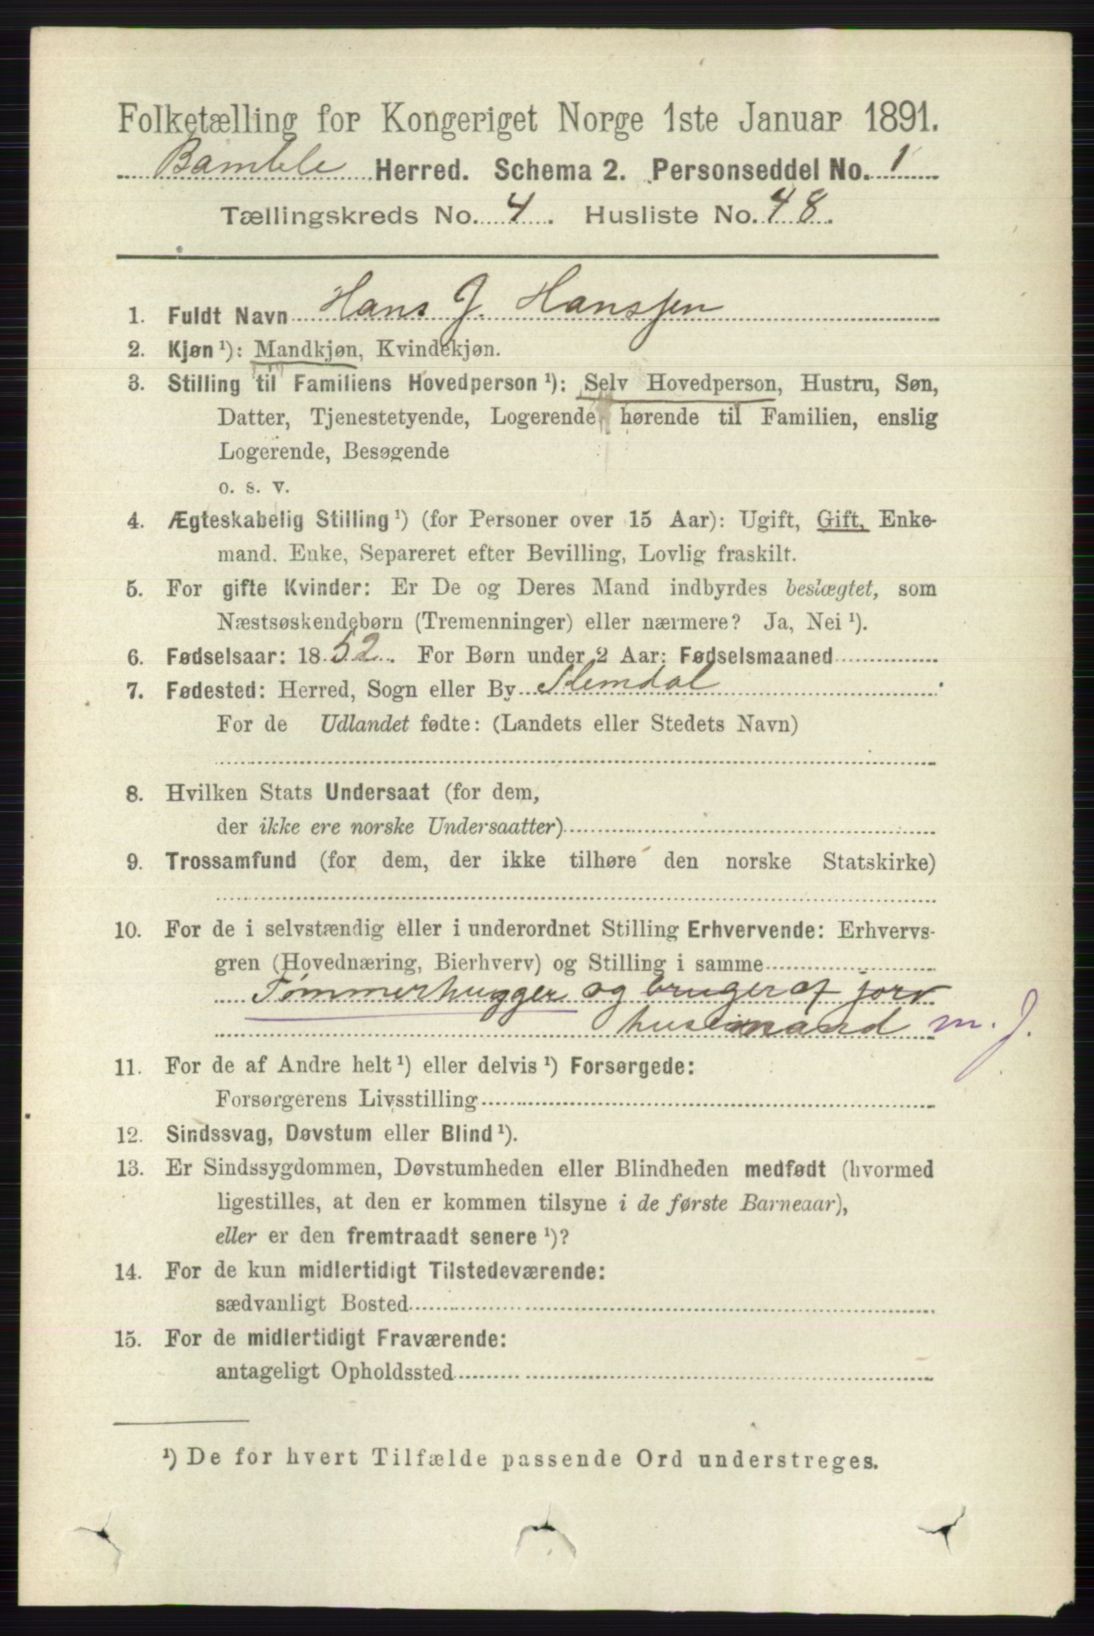 Folketælling for Kongeriget Norge 1ste Januar 1891.
Bamble Herred. Schema 2. Personseddel No. 1
Tællingskreds No. 4. Husliste No. 48.
1. Fuldt Navn Hans J. Hanssen
2. Kjøn ¹): Mandkjøn, Kvindekjøn.
3. Stilling til Familiens Hovedperson ¹): Selv Hovedperson, Hustru, Søn,
Datter, Tjenestetyende, Logerende hørende til Familien, enslig
Logerende, Besøgende
o. s. v.
4. Ægteskabelig Stilling ¹) (for Personer over 15 Aar): Ugift, Gift, Enke-
mand. Enke, Separeret efter Bevilling, Lovlig fraskilt.
5. For gifte Kvinder: Er De og Deres Mand indbyrdes beslægtet, som
Næstsøskendebørn (Tremenninger) eller nærmere? Ja, Nei ¹).
6. Fødselsaar: 1852. For Børn under 2 Aar: Fødselsmaaned
7. Fødested: Herred, Sogn eller By Slemdal
For de Udlandet fødte: (Landets eller Stedets Navn)
8. Hvilken Stats Undersaat (for dem,
der ikke ere norske Undersaatter)
9. Trossamfund (for dem, der ikke tilhøre den norske Statskirke)
10. For de i selvstændig eller i underordnet Stilling Erhvervende: Erhvervs-
gren (Hovednæring, Bierhverv) og Stilling i samme
Tømmerhugger og bruger af jord
husemand m. J.
11. For de af Andre helt ¹) eller delvis ¹) Forsørgede:
Forsørgerens Livsstilling
12. Sindssvag, Døvstum eller Blind ¹).
13. Er Sindssygdommen, Døvstumheden eller Blindheden medfødt (hvormed
ligestilles, at den er kommen tilsyne i de første Barneaar),
eller er den fremtraadt senere ¹)?
14. For de kun midlertidigt Tilstedeværende:
sædvanligt Bosted
15. For de midlertidigt Fraværende:
antageligt Opholdssted
¹) De for hvert Tilfælde passende Ord understreges.